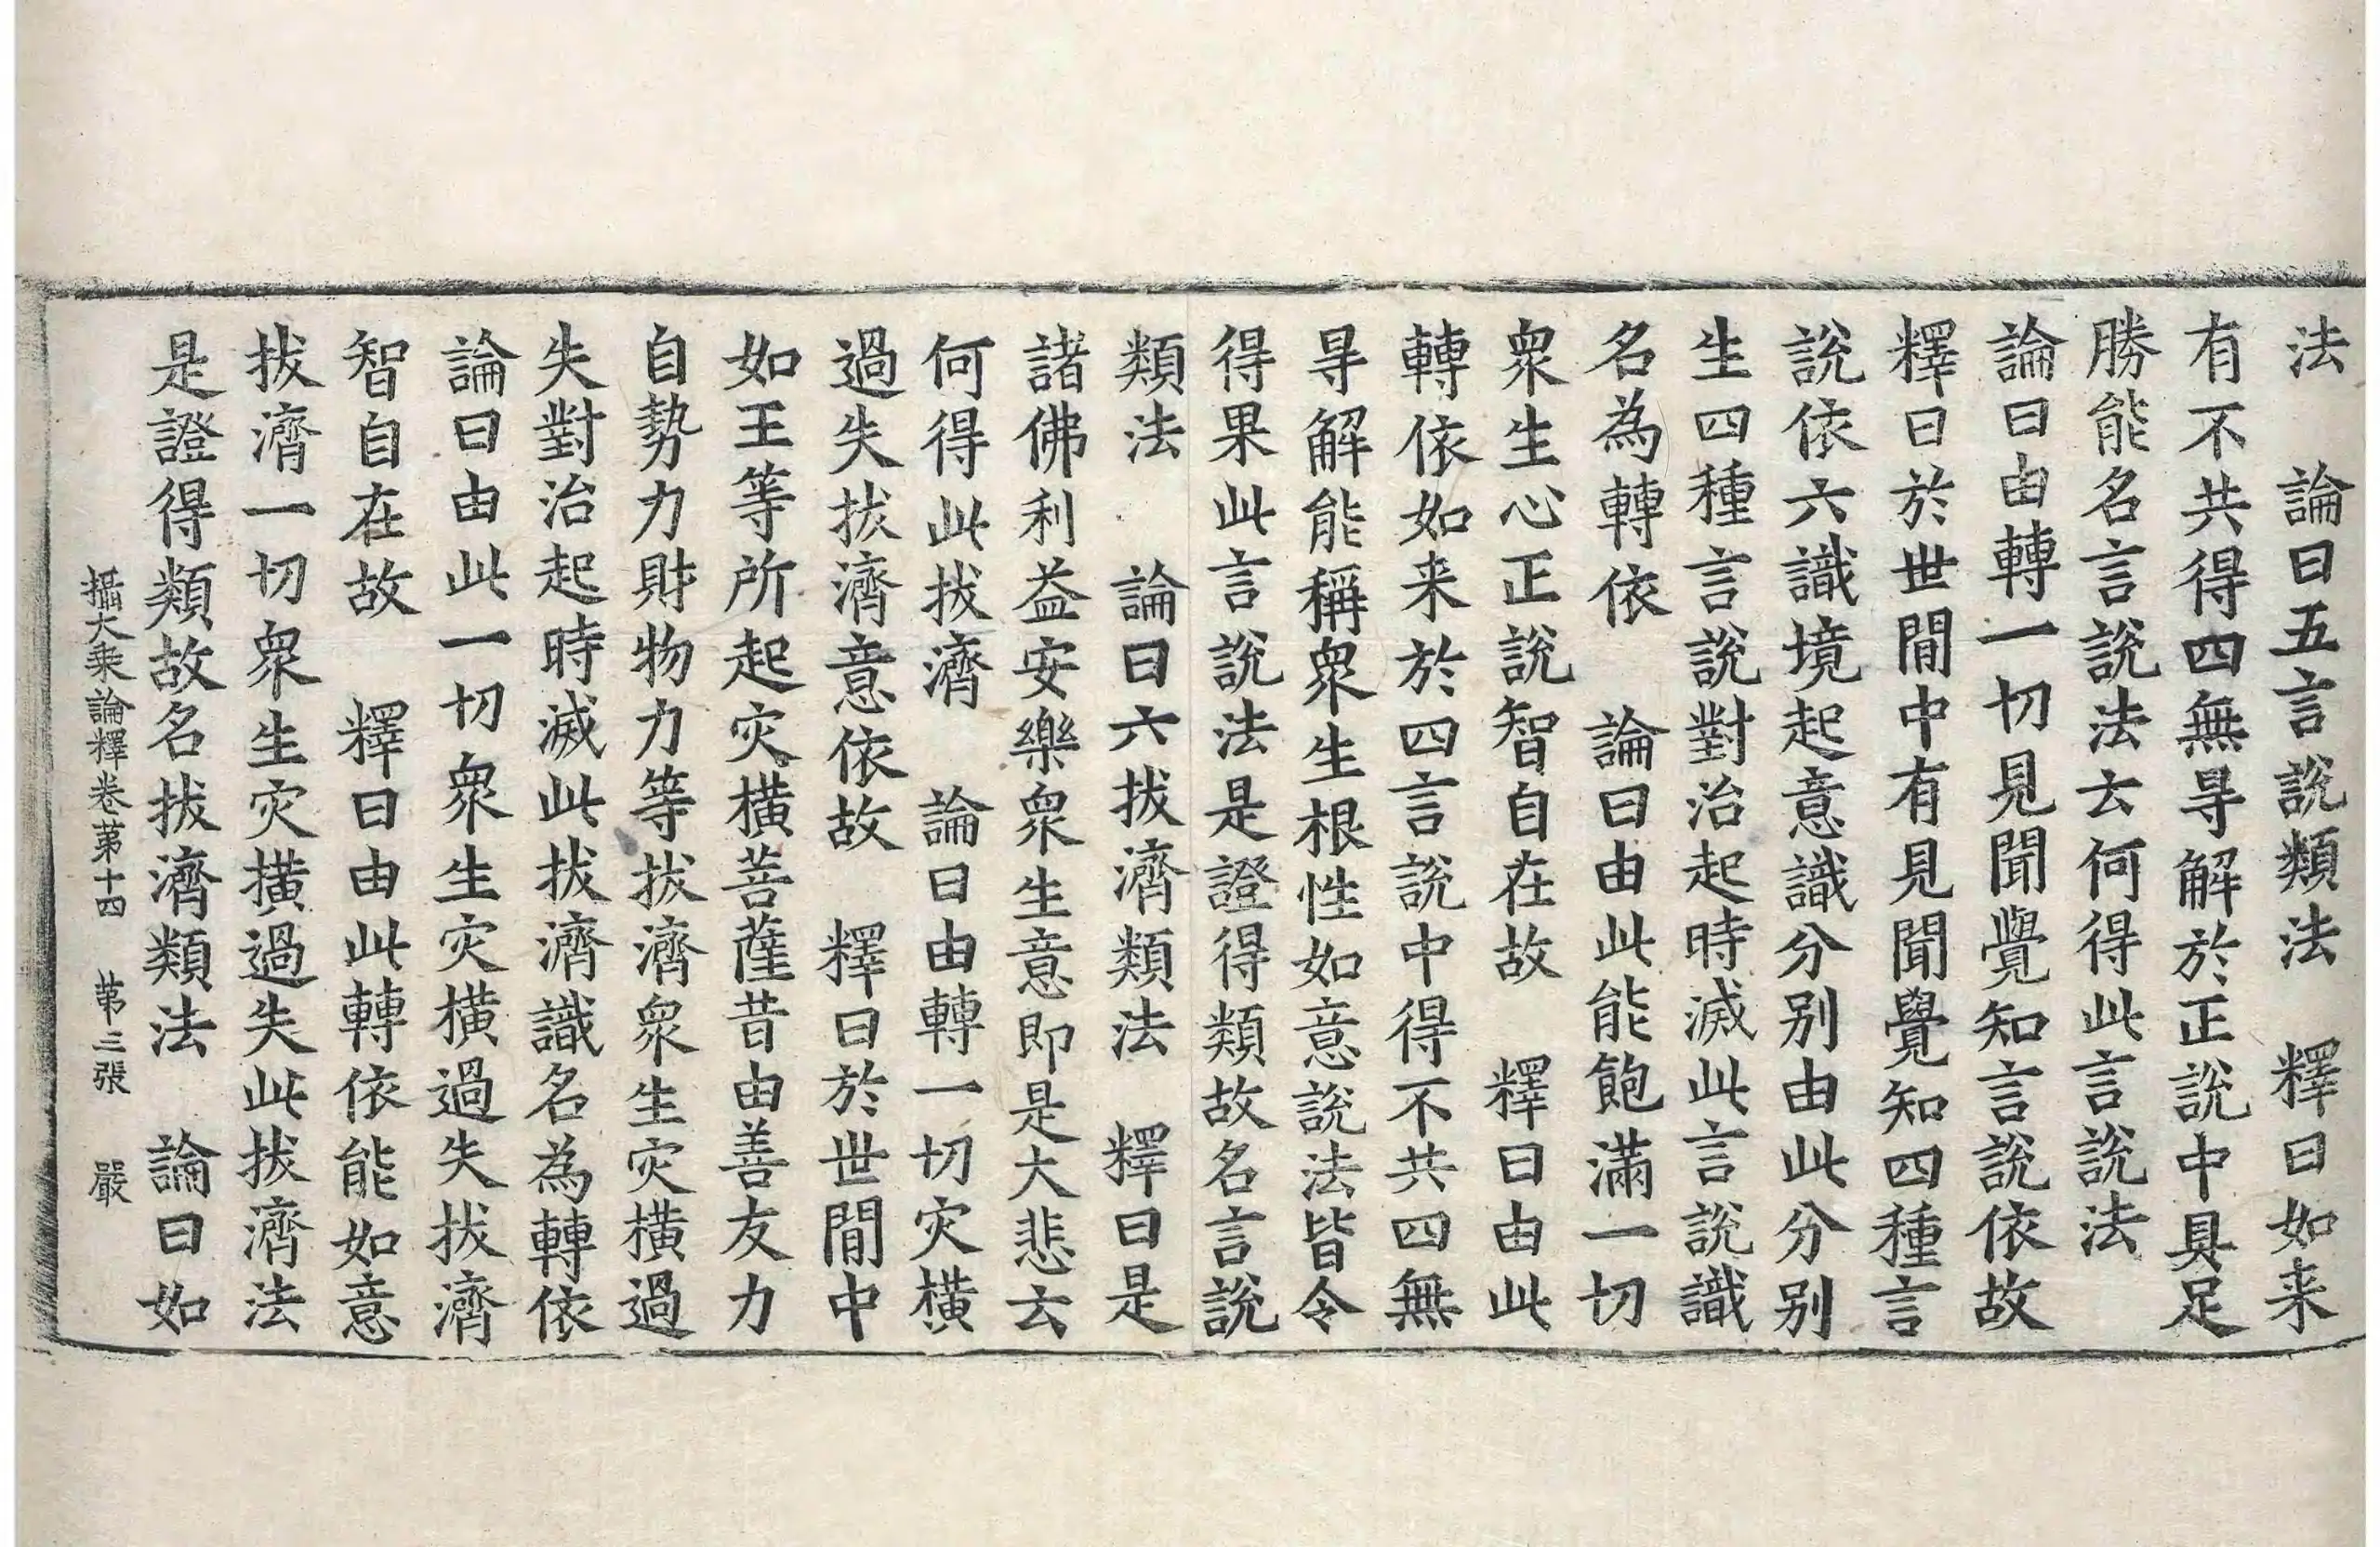 法　論曰五言說類法　釋曰如来
有不共得四無㝵解於正說中具足
勝能名言說法云何得此言說法
論曰由轉一切見聞覺知言說依故
釋曰於世間中有見聞覺知四種言
說依六識境起意識分别由此分别
生四種言說對治起時滅此言說識
名為轉依　論曰由此能飽滿一切
衆生心正說智自在故　釋曰由此
轉依如来於四言說中得不共四無
㝵解能稱衆生根性如意說法皆令
得果此言說法是證得類故名言說
類法　論曰六拔濟類法　釋曰是
諸佛利益安樂衆生意即是大悲云
何得此拔濟　論曰由轉一切灾橫
過失拔濟意依故　釋曰於世間中
如王等所起灾橫菩薩昔由善友力
自勢力財物力等拔濟衆生灾橫過
失對治起時滅此拔濟識名為轉依
論曰由此一切衆生灾橫過失拔濟
智自在故　釋曰由此轉依能如意
拔濟一切衆生灾橫過失此拔濟法
是證得類故名拔濟類法　論曰如
攝大乘論釋卷第十四　第三張　嚴